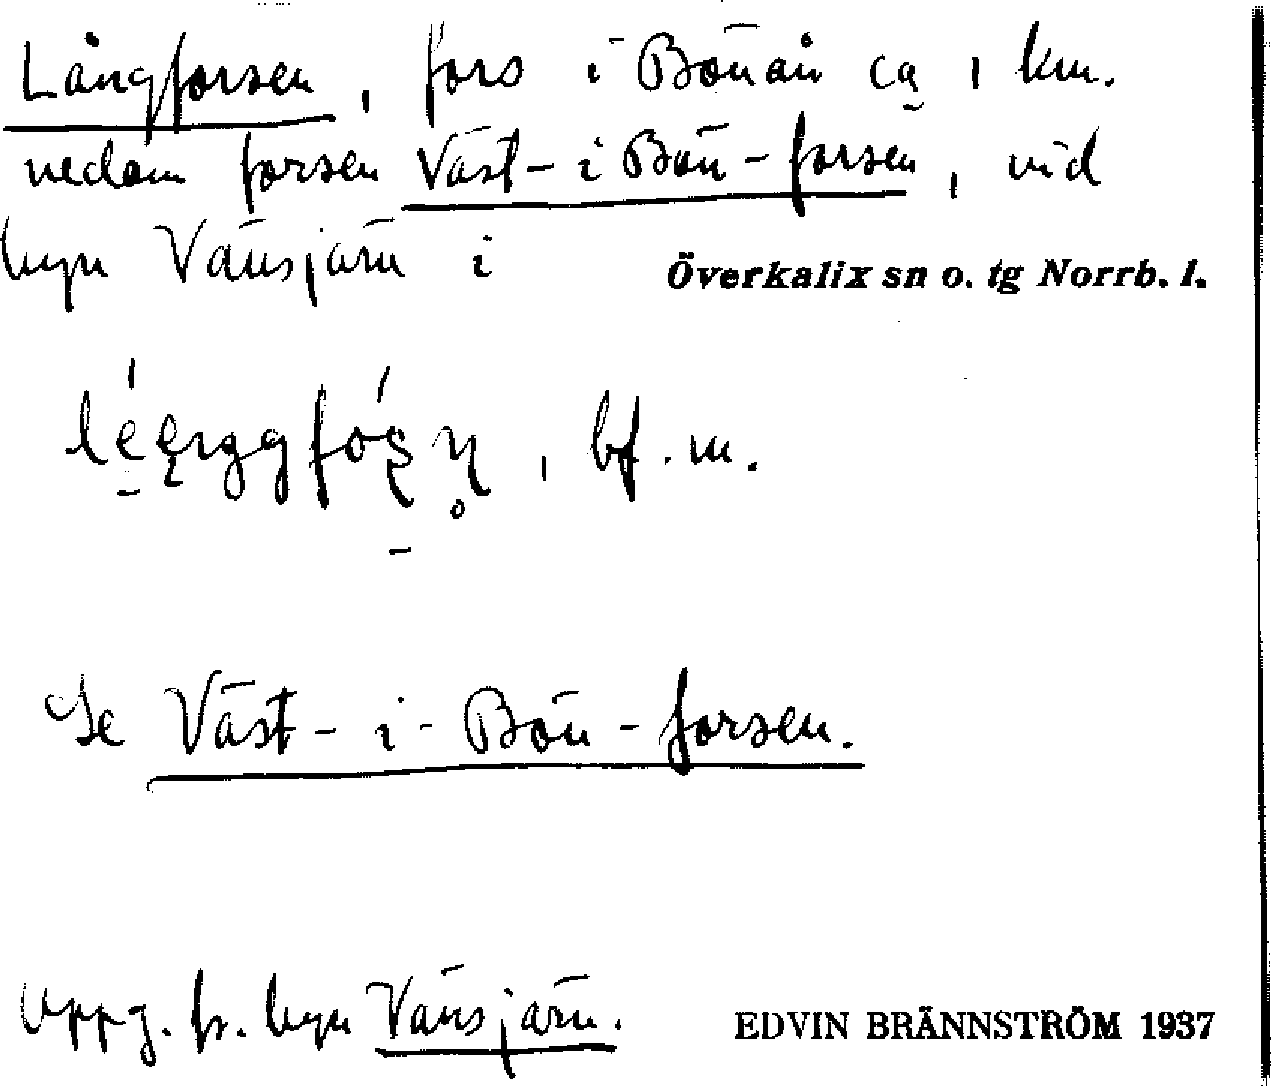 Långforsen, fors i Bönån ca 1 km.
nedom forsen Väst-i Bön-forsen, vid
byn Vänsjärv i Överkalix sn o. tg Norrb. l.
, bf. m.
Se Väst-i-Bön-forsen.
Uppg. fr. byn Vänsjärv. EDVIN BRÄNNSTRÖM 1937